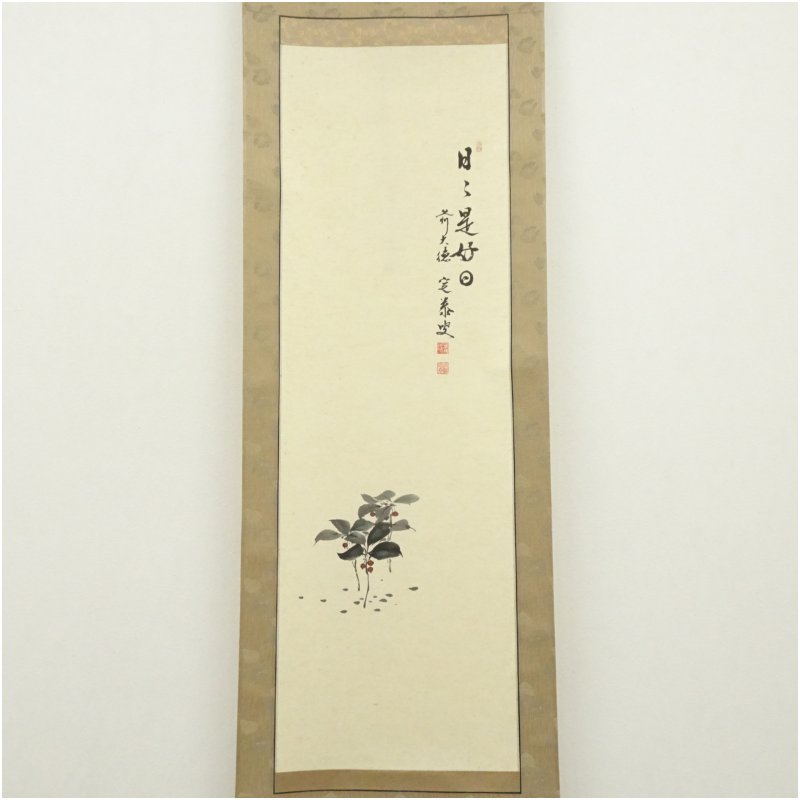 日々是好日
前大徳 寛泰叟